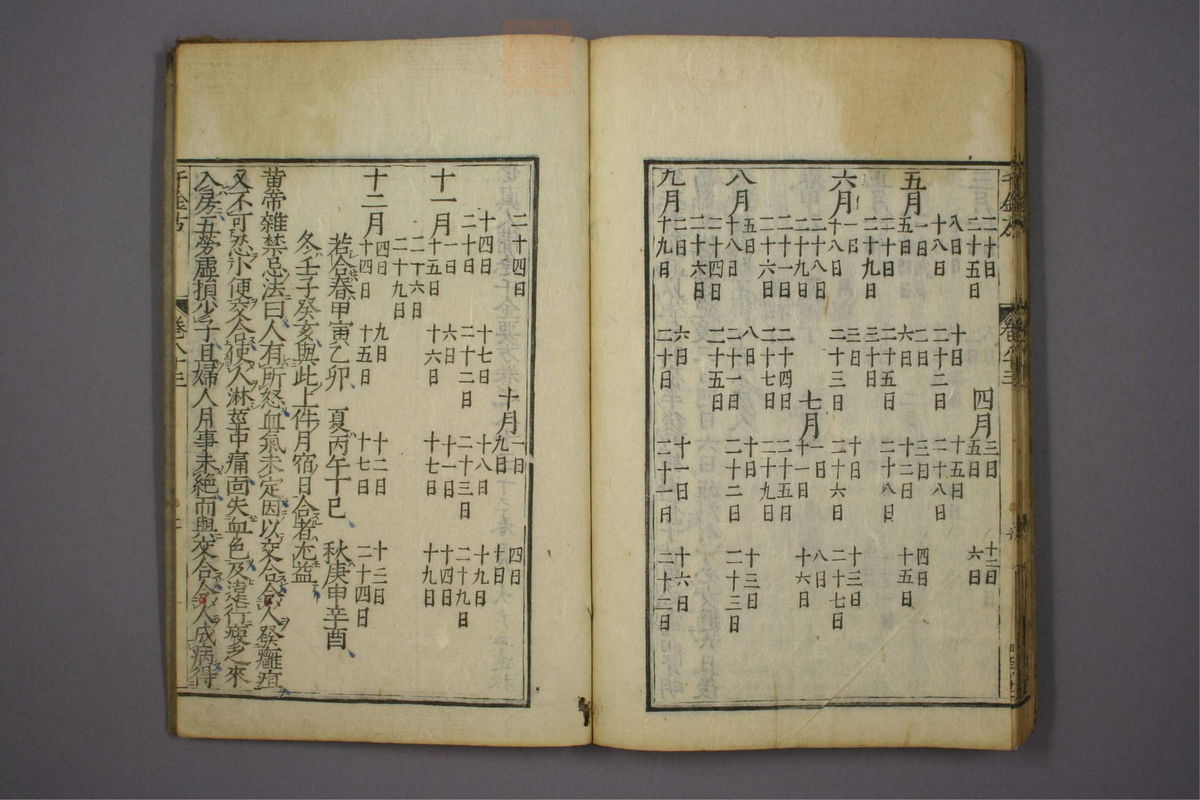 千金方 卷八十三
二十日 四月 三日 十二日
二十五日 五日 六日
八日 十日 十五日
十八日 二十二日 二十八日
五月 一日 三日 四日
五日 六日 十二日 十五日
二十日 二十五日 二十八日
二十九日 三十日
六月 一日 三日 十日 十三日
十八日 二十三日 二十六日 二十七日
二十八日 七月 一日 八日
二十九日 十一日 十六日
二十一日 二十四日 二十五日
二十六日 二十七日 二十九日
八月 五日 八日 十日 十三日
十八日 二十一日 二十二日 二十三日
二十四日 二十五日
二十六日
九月 二日 六日 十一日 十六日
十九日 二十日 二十一日 二十二日
二十四日 十月 一日 四日
九日 十日
十四日 十七日 十八日 十九日
二十日 二十二日 二十三日 二十九日
十一月 一日 六日 十一日 十四日
十五日 十六日 十七日 十九日
二十六日
二十九日
十二月 四日 九日 十二日 十三日
十四日 十五日 十七日 二十四日
若合春甲寅乙卯 夏丙午丁巳 秋庚申辛酉
冬壬子癸亥與此上件月宿日合者尤益
黄帝雜禁忌法曰人有所怒血氣未定因以交合令人發癰疽
又不可忍小便交合使人淋莖中痛面失血色及遠行疲乏來
入房五勞虛損少子且婦人月事未絶而與交合令人成病得
千金方 卷八十三